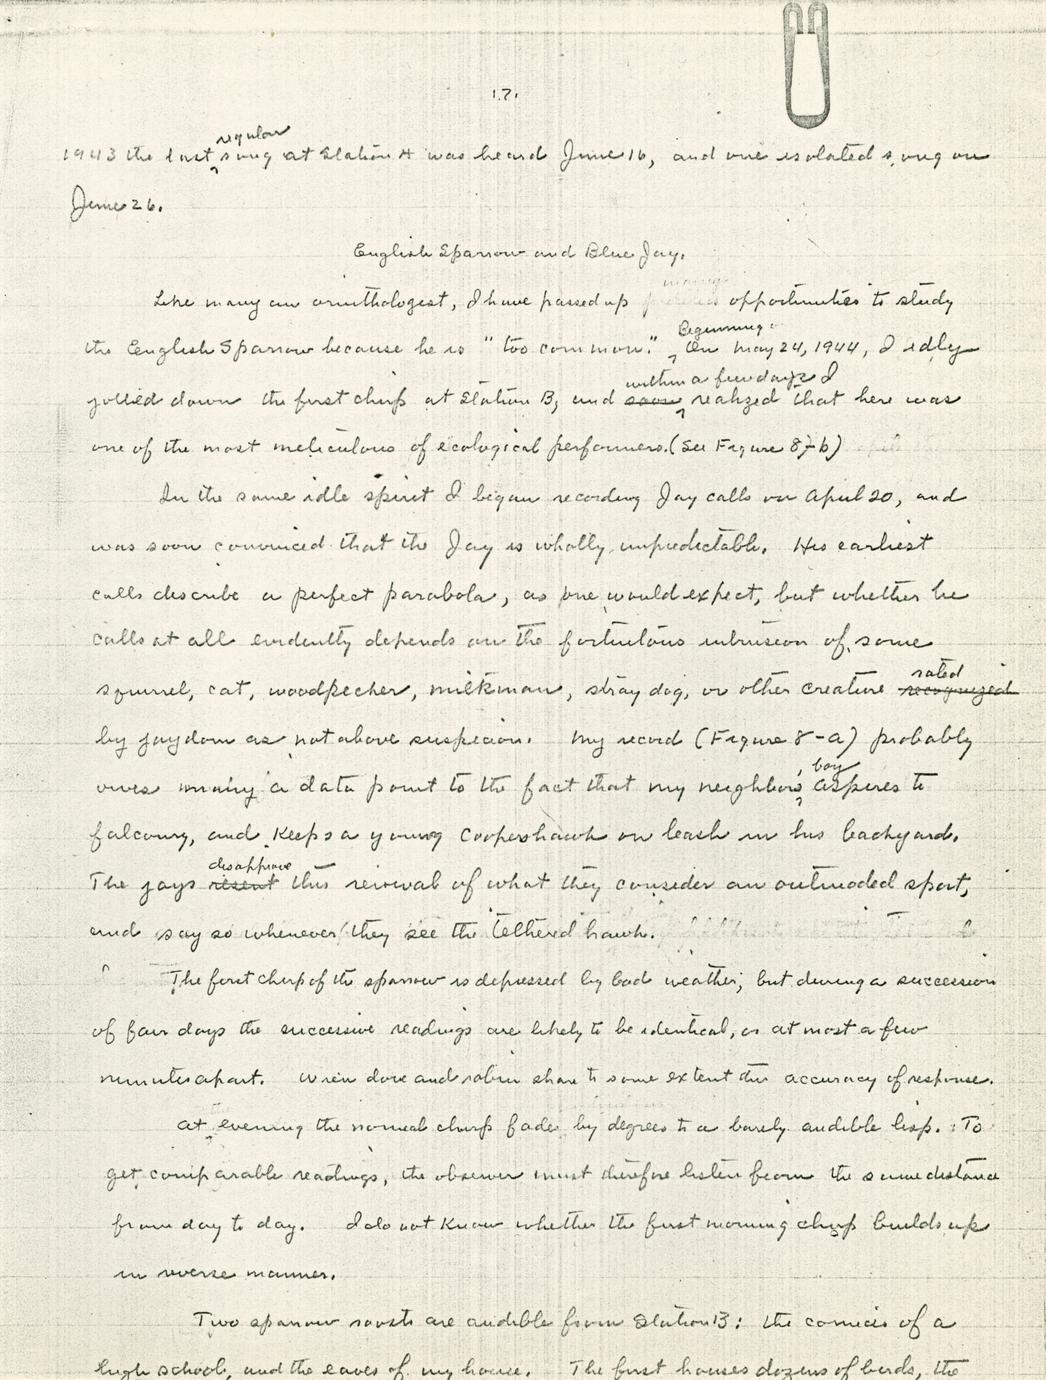 17.
regular
1943 the last song at Station A was heard June 16, and one isolated song on
June 26.
English Sparrow and Blue Jay.
Like many an ornithologist, I have passed up opportunities to study
Beginning
the English Sparrow because he is "too common." On May 24, 1944, I idly
within a few days I
jotted down the first chirp at Station B, and soon realized that here was
one of the most meticulous of ecological performers. (See Figure 8-b)
In the same idle spirit I began recording Jay calls on April 20, and
was soon convinced that the Jay is wholly unpredictable. His earliest
calls describe a perfect parabola, as one would expect, but whether he
calls at all evidently depends on the fortuitous intrusion of some
rated
squirrel, cat, woodpecker, milkman, stray dog, or other creature recognized
by jaydom as not above suspicion. My record (Figure 8-a) probably
boy
owes many a data point to the fact that my neighbor's aspires to
falconry, and keeps a young Coopershawk on leash in his backyard.
disapprove
The jays resent this revival of what they consider an outmoded sport,
and say so whenever they see the tethered hawk.
The first chirp of the sparrow is depressed by bad weather, but during a succession
of fair days the successive readings are likely to be identical, or at most a few
minutes apart. Wren dove and robin share to some extent this accuracy of response.
At evening the normal chirp fades by degrees to a barely audible lisp. To
get comparable readings, the observer must therefore listen from the same distance
from day to day. I do not know whether the first morning chirp builds up
in reverse manner.
Two sparrow roosts are audible from Station B: the cornices of a
high school, and the eaves of my house. The first houses dozens of birds, the